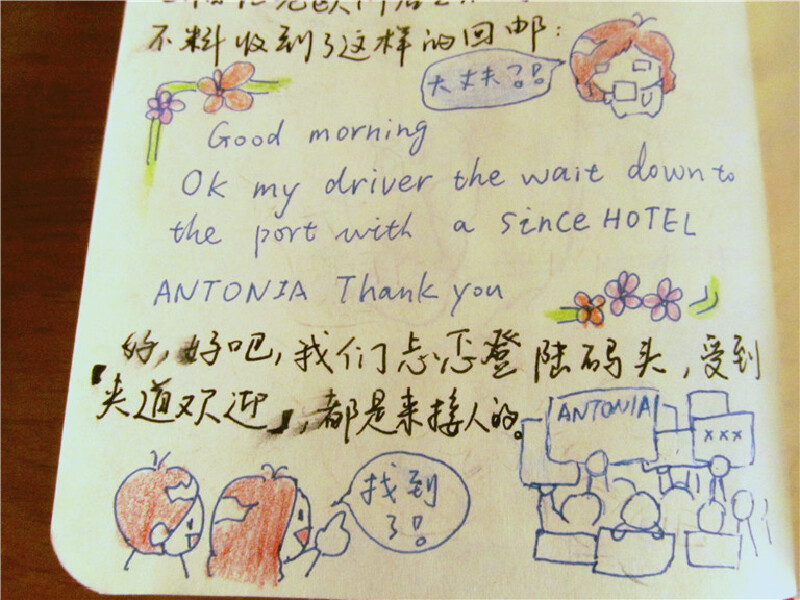 不料收到了这样的回邮：
大丈夫？！
Good morning
OK my driver the wait down to
the port with a since HOTEL
ANTONIA Thank you
好,好吧,我们忐忑登陆码头,受到
「夹道欢迎」,都是来接人的。
ANTONIA
xxx
找到
了！